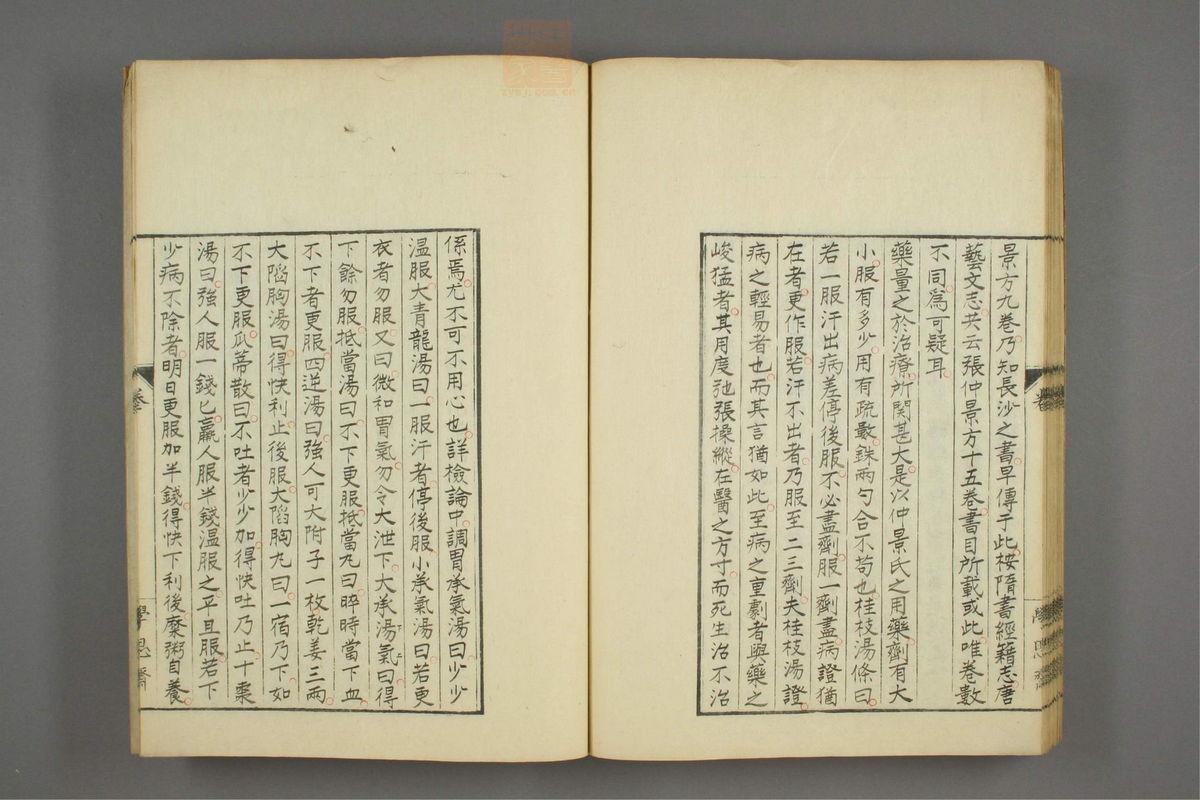 景方九卷乃知長沙之書早傳于此桉隋書經籍志唐
藝文志共云張仲景方十五卷書目所載或此唯卷數
不同爲可疑耳
藥量之於治療所関甚大是以仲景氏之用藥劑有大
小服有多少用有疏數銖两勺合不苟也桂枝湯條曰
若一服汗出病差停後服不必盡劑服一劑盡病證猶
在者更作服若汗不出者乃服至二三劑夫桂枝湯證
病之輕易者也而其言猶如此至病之重劇者與藥之
峻猛者其用度弛張操縱在醫之方寸而死生治不治
係焉尤不可不用心也詳檢論中調胃承氣湯曰少少
温服大青龍湯曰一服汗者停後服小承氣湯曰若更
衣者勿服又曰微和胃氣勿令大泄下大承湯氣曰得
下餘勿服抵當湯曰不下更服抵當丸曰晬時當下血
不下者更服四逆湯曰強人可大附子一枚乾姜三兩
大陷胸湯曰得快利止後服大陷胸丸曰一宿乃下如
不下更服瓜蒂散曰不吐者少少加得快吐乃止十棗
湯曰強人服一錢匕羸人服半錢温服之平旦服若下
少病不除者明日更服加半錢得快下利後糜粥自養
學思齋
zysj.com.cn